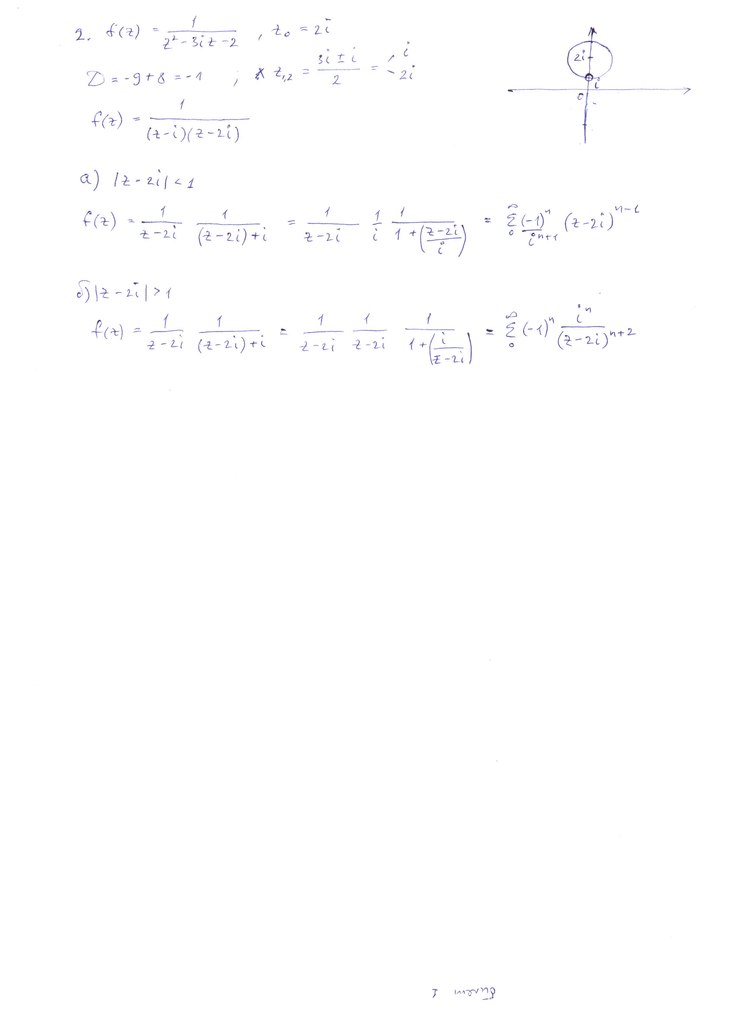 2. f(z) = 1/(z² - 3iz - 2) , z₀ = 2i
D = -9 + 8 = -1 ; z₁,₂ = (3i ± i)/2 = i, 2i
f(z) = 1/((z-i)(z-2i))
2i
i
0
а) |z - 2i| < 1
f(z) = 1/(z-2i) 1/((z-2i)+i) = 1/(z-2i) 1/i 1/(1+((z-2i)/i)) = ∑₀^∞ (-1)ⁿ/iⁿ⁺¹ (z-2i)ⁿ⁻¹
б) |z - 2i| > 1
f(z) = 1/(z-2i) 1/((z-2i)+i) = 1/(z-2i) 1/(z-2i) 1/(1+(i/(z-2i))) = ∑₀^∞ (-1)ⁿ iⁿ/(z-2i)ⁿ⁺²
билет 1